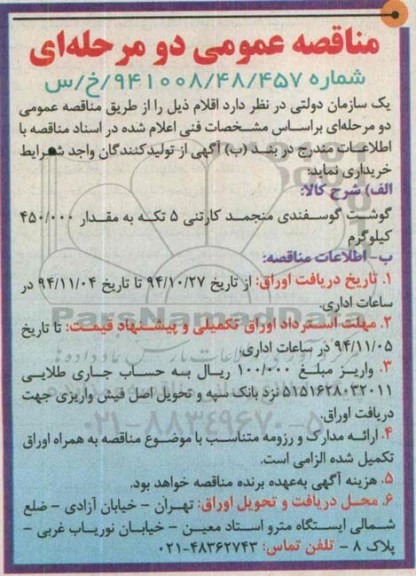 مناقصه عمومی دو مرحله‌ای
شماره ۹۴۱۰۰۸/۴۸/۴۵۷/خ/س
یک سازمان دولتی در نظر دارد اقلام ذیل را از طریق مناقصه عمومی
دو مرحله‌ای براساس مشخصات فنی اعلام شده در اسناد مناقصه با
اطلاعات مندرج در بند (ب) آگهی از تولیدکنندگان واجد شرایط
خریداری نماید:
الف) شرح کالا:
گوشت گوسفندی منجمد کارتنی ۵ تکه به مقدار ۴۵۰/۰۰۰
کیلوگرم
ب- اطلاعات مناقصه:
۱. تاریخ دریافت اوراق: از تاریخ ۹۴/۱۰/۲۷ تا تاریخ ۹۴/۱۱/۰۴ در
ساعات اداری.
۲. مهلت استرداد اوراق تکمیلی و پیشنهاد قیمت: تا تاریخ
۹۴/۱۱/۰۵ در ساعات اداری.
۳. واریز مبلغ ۱۰۰/۰۰۰ ریال به حساب جاری طلایی
۵۱۵۱۶۲۸۰۳۲۰۱۱ نزد بانک سپه و تحویل اصل فیش واریزی جهت
دریافت اوراق.
۴. ارائه مدارک و رزومه متناسب با موضوع مناقصه به همراه اوراق
تکمیل شده الزامی است.
۵. هزینه آگهی به‌عهده برنده مناقصه خواهد بود.
۶. محل دریافت و تحویل اوراق: تهران - خیابان آزادی - ضلع
شمالی ایستگاه مترو استاد معین - خیابان نوریاب غربی -
پلاک ۸ - تلفن تماس: ۴۸۳۶۲۷۴۳-۰۲۱
ParsNamadData
۰۲۱-۸۸۳۴۹۶۷۰-۵